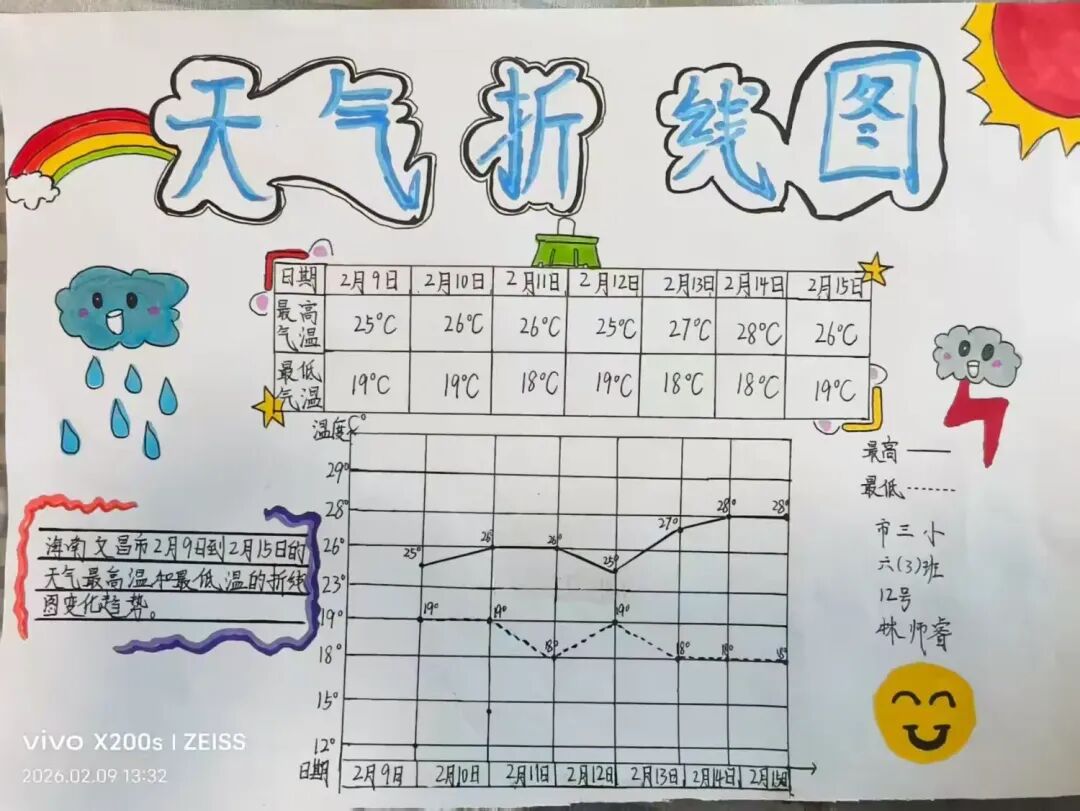 天气折线图
日期 2月9日 2月10日 2月11日 2月12日 2月13日 2月14日 2月15日
最高气温 25°C 26°C 26°C 25°C 27°C 28°C 26°C
最低气温 19°C 19°C 18°C 19°C 18°C 18°C 19°C
温度C°
最高
最低
29°
28°
26°
23°
19°
18°
15°
12°
25° 26° 26° 25° 27° 28° 28°
19° 19° 18° 19° 18° 18° 18°
日期 2月9日 2月10日 2月11日 2月12日 2月13日 2月14日 2月15日
海南文昌市2月9日到2月15日的
天气最高温和最低温的折线
图变化趋势。
市三小
六(3)班
12号
林师睿
vivo X200s | ZEISS
2026.02.09 13:32